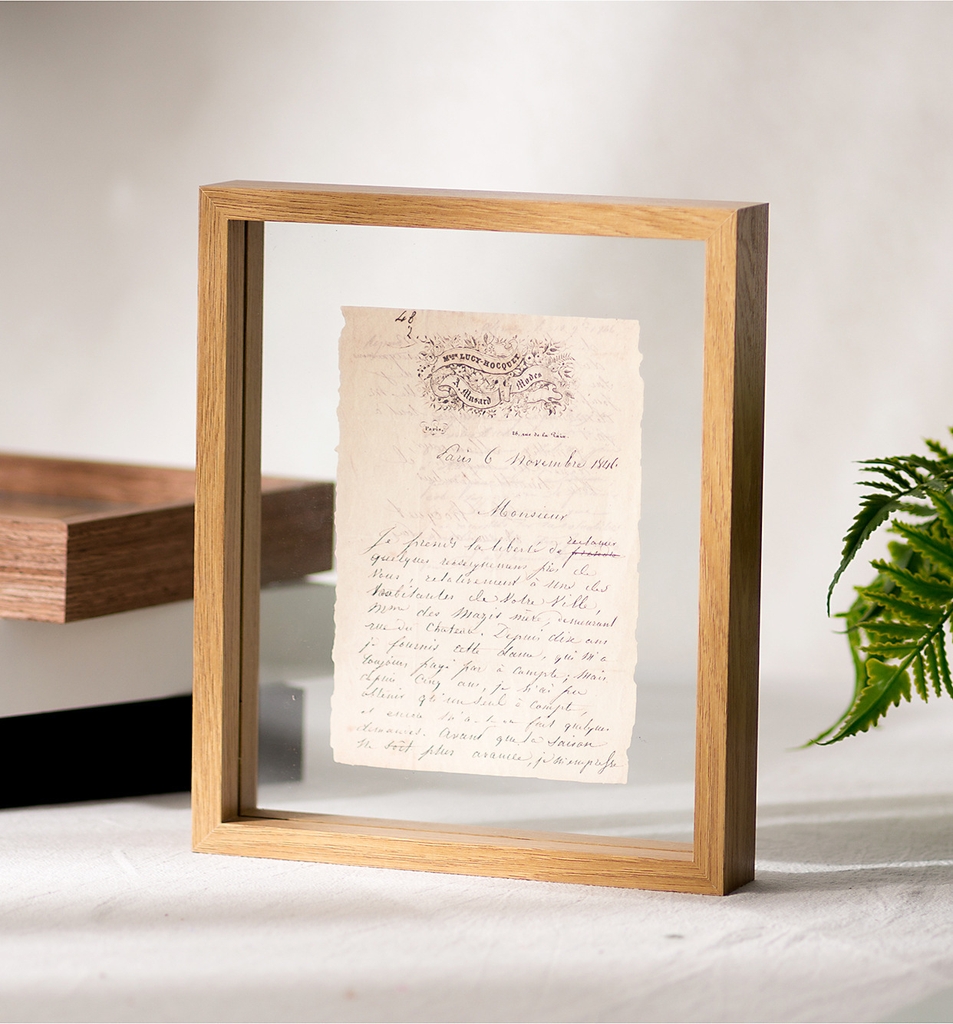 48
2
Mme LUCY-HOCQUET
A. Musard Modes
Paris. 26, rue de la Paix.
Paris 6 Novembre
Monsieur
Je prends la liberté de
quelques renseignemens près de
Vous, relativement à une des
habitantes de Votre Ville,
Mme des Mazis mère, demeurant
rue du Château. Depuis dix ans
je fournis cette Dame, qui m'a
toujours payé par à compte; mais
depuis cinq ans, je n'ai pu
obtenir qu'un seul à compte,
et encore fait quelques
démarches. Avant que la saison
ne soit plus avancée, je m'empresse